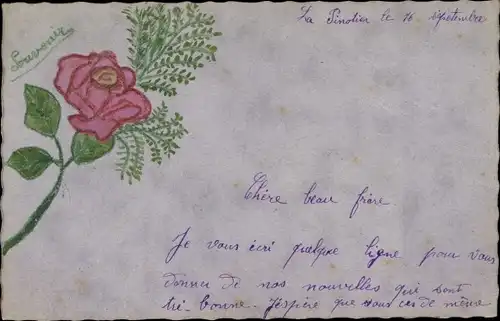 Souvenir
La Pinotier le 16 septembre
Chère beau frère
Je vous écri quelque ligne pour vous
donnu de nos nouvelles qui sont
tri-bonne. J'espère que vous ces de même